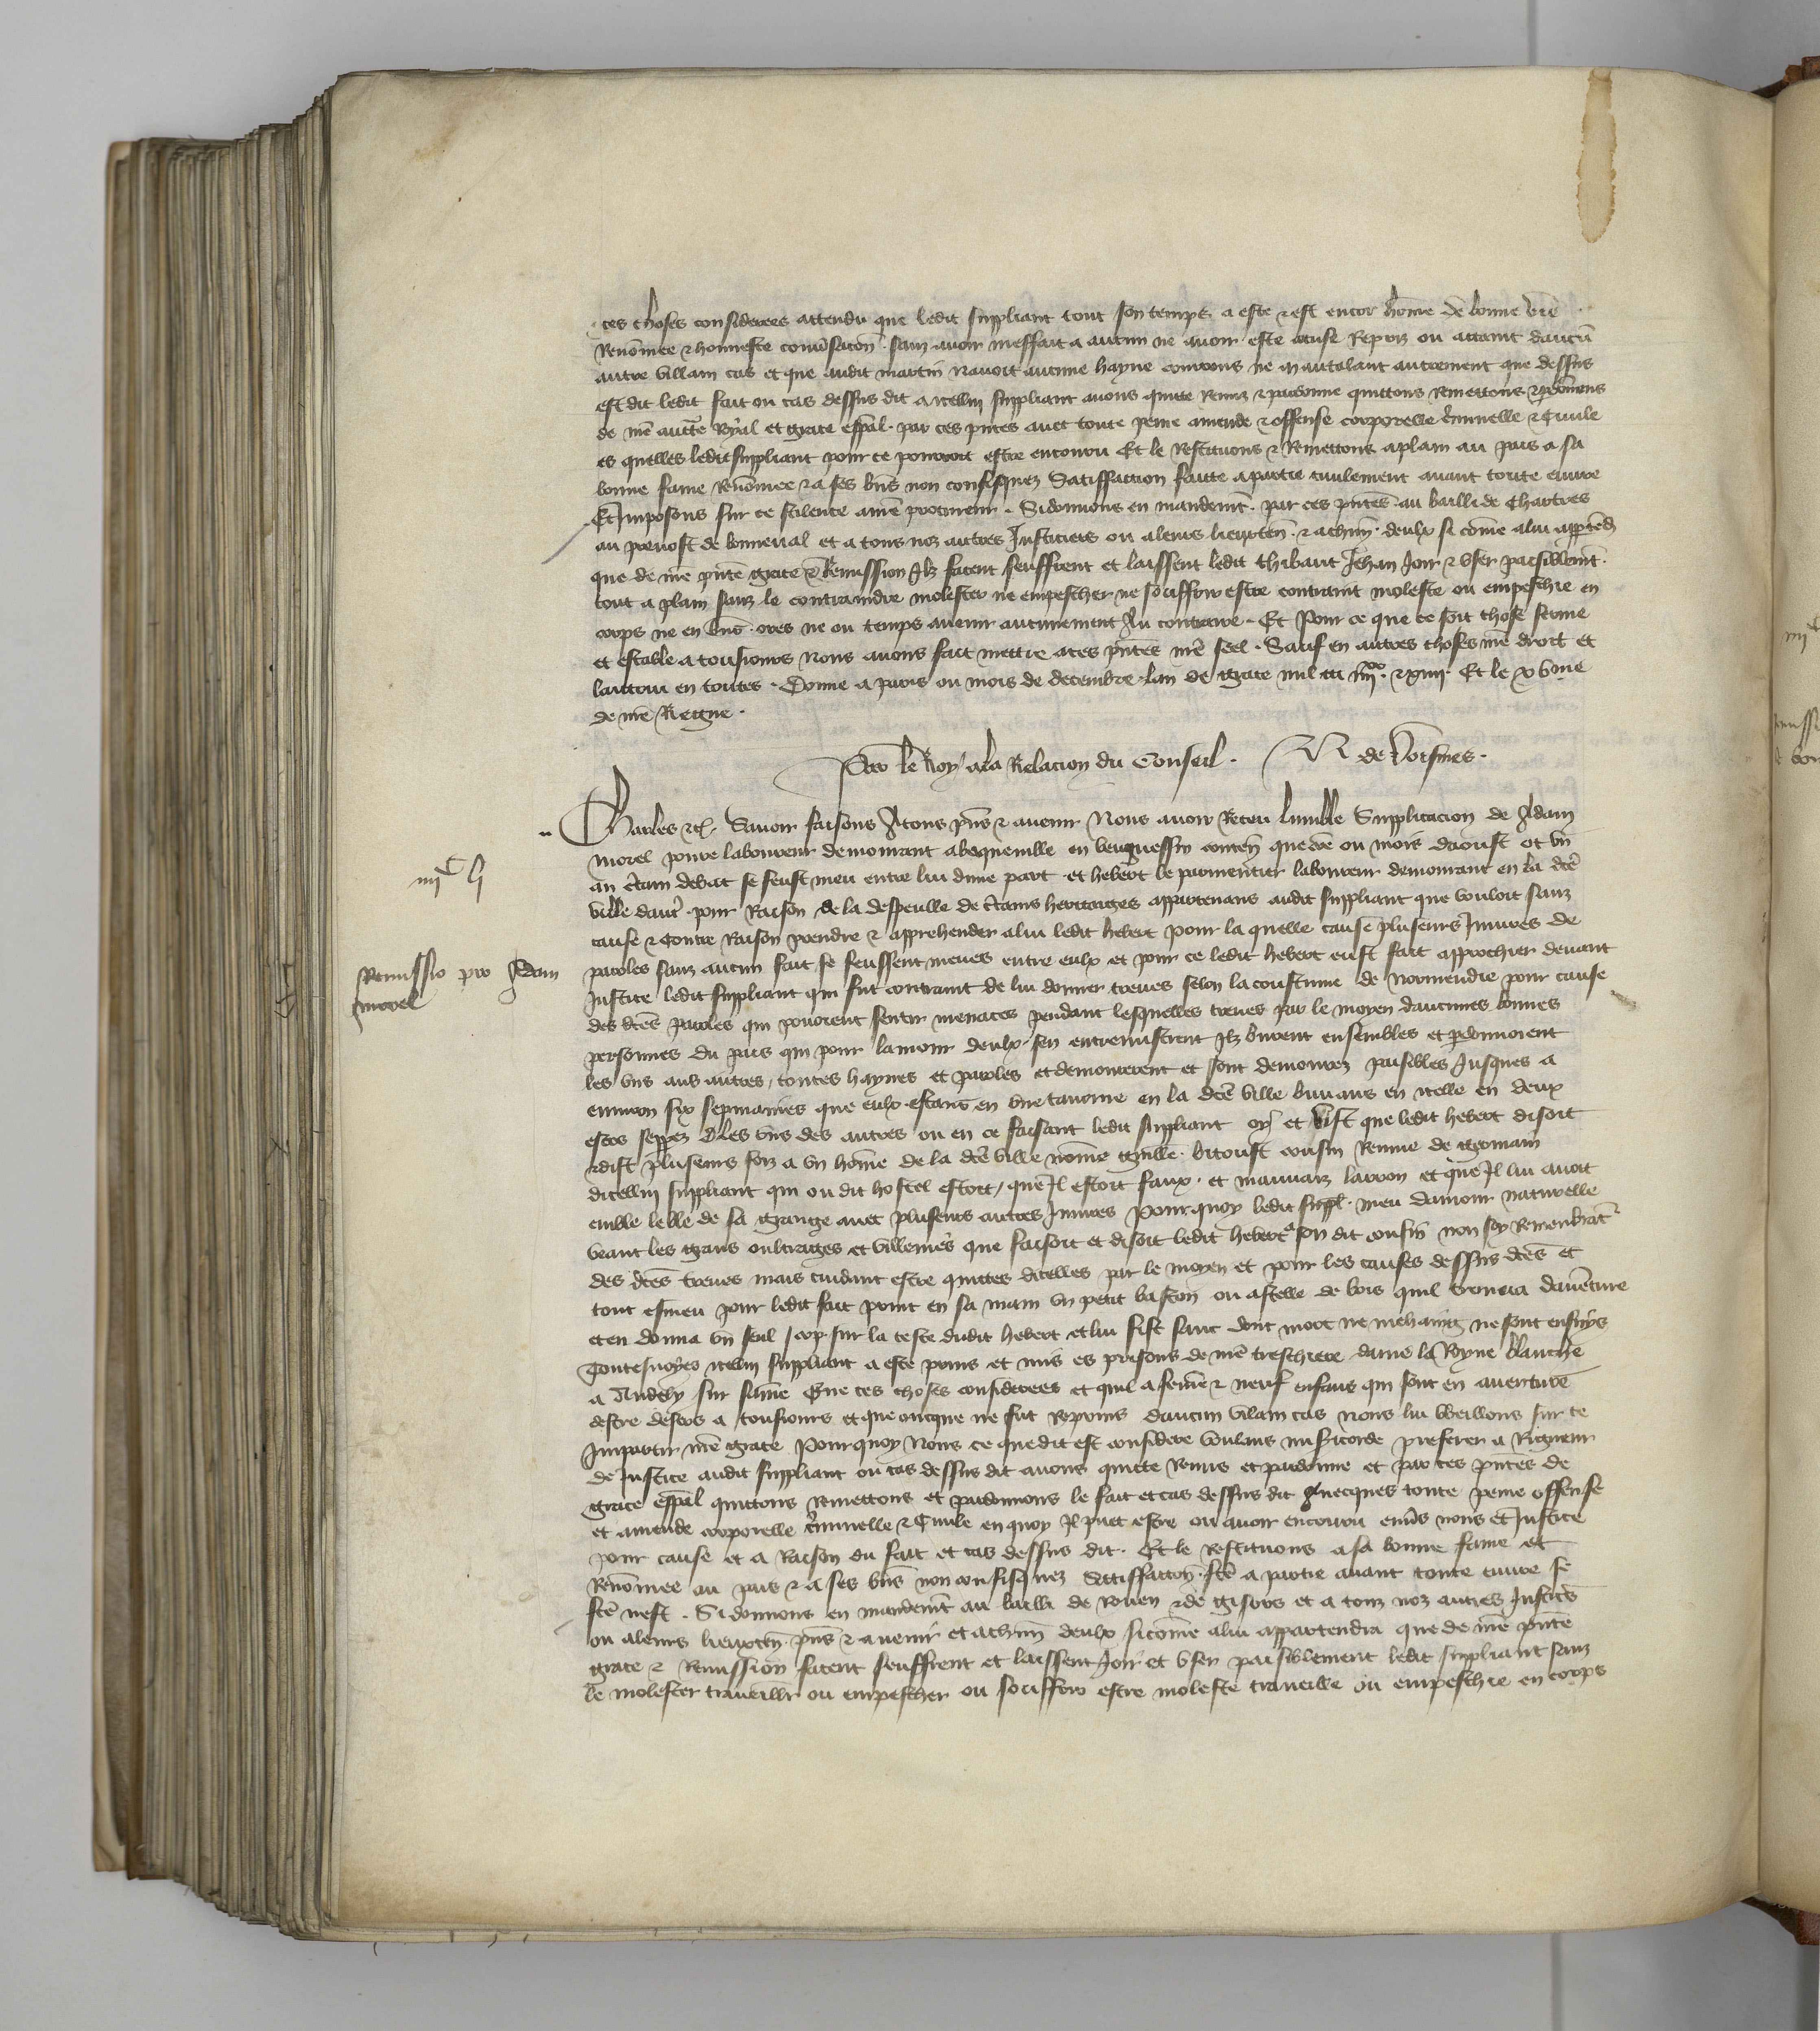 ces choses considerees attendu que ledit suppliant tout son temps a este & est encor hōme de bonne vie
Renōmee & honneste conūsacōn. sanz avoir meffait a aucun ne avoir este accuse Repris ou attaint daucū
autre villain cas et que audit martin navoit aucune hayne courrous ne mautalant autrement que dessus
est dit ledit fait ou cas dessus dit a icellui suppliant avons quitte Remis & pardonne quittons Remettons & pdōnons
de nr̄e auctte Royal et grace esp̄al. par ces pn̄tes avec toute peine amende & offense corporelle criminelle & Civile
es quelles ledit suppliant pour ce pourroit estre encouru Et le Restituons & Remettons a plain au pais a sa
bonne fame Renōmee & a ses bn̄s non confisquez Satisfaction faicte a partie civilement avant toute euvre
Et Imposons sur ce silence a nr̄e procureur. Si donnons en mandemt. par ces pn̄tes au bailli de Chartres
au prevost de bonneval et a tous noz autres Justiciers ou a leurs lieuxten̄. & a chūn. deulx si cōme a lui apptēd
que de nr̄e pn̄te grace & Remission Ilz facent seuffrent et laissent ledit thibaut Jehan Joir & user paisiblemt.
tout a plain sanz le contraindre molester ne empescher ne souffrir estre contraint moleste ou empeschie en
corps ne en biēs. ores ne ou temps avenir aucunement Au contraire. Et Pour ce que ce soit chose ferme
et estable a tousjours Nous avons fait mettre a ces pn̄tes nr̄e seel. Sauf en autres choses nr̄e droit et
lautrui en toutes. Donne a paris ou mois de decembre. lan de grace mil ccc iiijxx. & xiiij. Et le xvme
de nr̄e Regne.
Par le Roy / a la Relacion du Conseil. N de Voisines.
Charles &c. Savoir faisons A tous pn̄s & avenir Nous avoir Receu lumble Supplicacion de Adam
morel povre laboureur demourant a bequenville en veuquessin conten̄. que cōe ou mois daoust ot un
an c̄tain debat se feust meu entre lui dune part et hebert le parmentier laboureur demourant en la dc̄e
ville dautr̄. pour Raison de la despeulle de c̄tains heritaiges appartenans audit suppliant que vouloit sanz
cause & Contre Raison prendre & apprehender a lui ledit hebert pour la quelle cause pluseurs Injures de
paroles sanz aucun fait se feussent meues entre eulx et pour ce ledit hebert eust fait approchier devant
Justice ledit suppliant qui fut contraint de lui donner treves selon la coustume de normendie pour cause
des dc̄es paroles qui povoient sentir menaces pendant lesquelles treves par le moyen daucunes bonnes
personnes du pais qui pour lamour deulx sen entremistrent Ilz burent ensembles et pdonnerent
les uns aus autres, toutes haynes et paroles et demourerent et sont demourez paisibles Jusques a
environ six sepmaines que eulx estans en une taverne en la dc̄e ville buvans en icelle en deux
escos seppez Dles uns des autres ou en ce faisant ledit suppliant oy et vist que ledit hebert disoit
& dist pluseurs foiz a un hōme de la dc̄e ville nōme guille. bitoust cousin Remue de germain
dicellui suppliant qui ou dit hostel estoit, que Il estoit faux. et mauvaiz larron et que Il lui avoit
emble le ble de sa grange avec pluseurs autres Injures Pour quoy ledit suppl. meu damour naturelle
veant les grans oultraiges et villenies que faisoit et disoit ledit hebert a son dit cousin non soy Remenbrāt
des dc̄es treves mais cuidant estre quittes dicelles par le moyen et pour les causes dessus dc̄es et
tout esmeu pour ledit fait print en sa main un petit baston ou astelle de bois quil trouva davēture
et en donna un seul cop sur la teste dudit hebert et lui fist sanc dont mort ne mehaing ne sont ensuys
Toutesvoyes icellui suppliant a este prins et mis es prisons de nr̄e treschiere dame la Royne blanche
a Andely sur saine Que ces choses considerees et quil a fem̄e & neuf enfans qui sont en aventure
destre desers a tousiours et que oncque ne fut Repris daucun vilain cas nous lui vueillons sur ce
Impartir nr̄e grace Pour quoy Nous ce que dit est considere voulans misericorde preferer a Rigueur
de Justice audit suppliant ou cas dessus dit avons quitte Remis et pardonne et par ces pn̄tes de
grace esp̄al quittons Remettons et pardonnons le fait et cas dessus dit avecques toute peine offense
et amende corporelle criminelle & Civile en quoy Il puet estre ou avoir encouru env̄s nous et Justice
pour cause et a Raison du fait et cas dessus dit. Et le restituons a sa bonne fame et
Renōmee au pais & a ses bn̄s non confisquez Satisfaction. fc̄e a partie avant toute euvre se
fc̄e nest. Si donnons en mandemt au bailli de Rouen & de gisors et a touz noz autres Justic̄es
ou a leurs lieuxten̄. pn̄s & avenir et a chūn deulx si cōme a lui appartendra que de nr̄e pn̄te
grace & Remission facent seuffrent et laissent Joir et user paisiblement ledit suppliant sanz
le molester traveillr ou empescher ou souffrir estre moleste traveille ou empeschie en corps
iiijc lj
Remissio pro Adam
morel